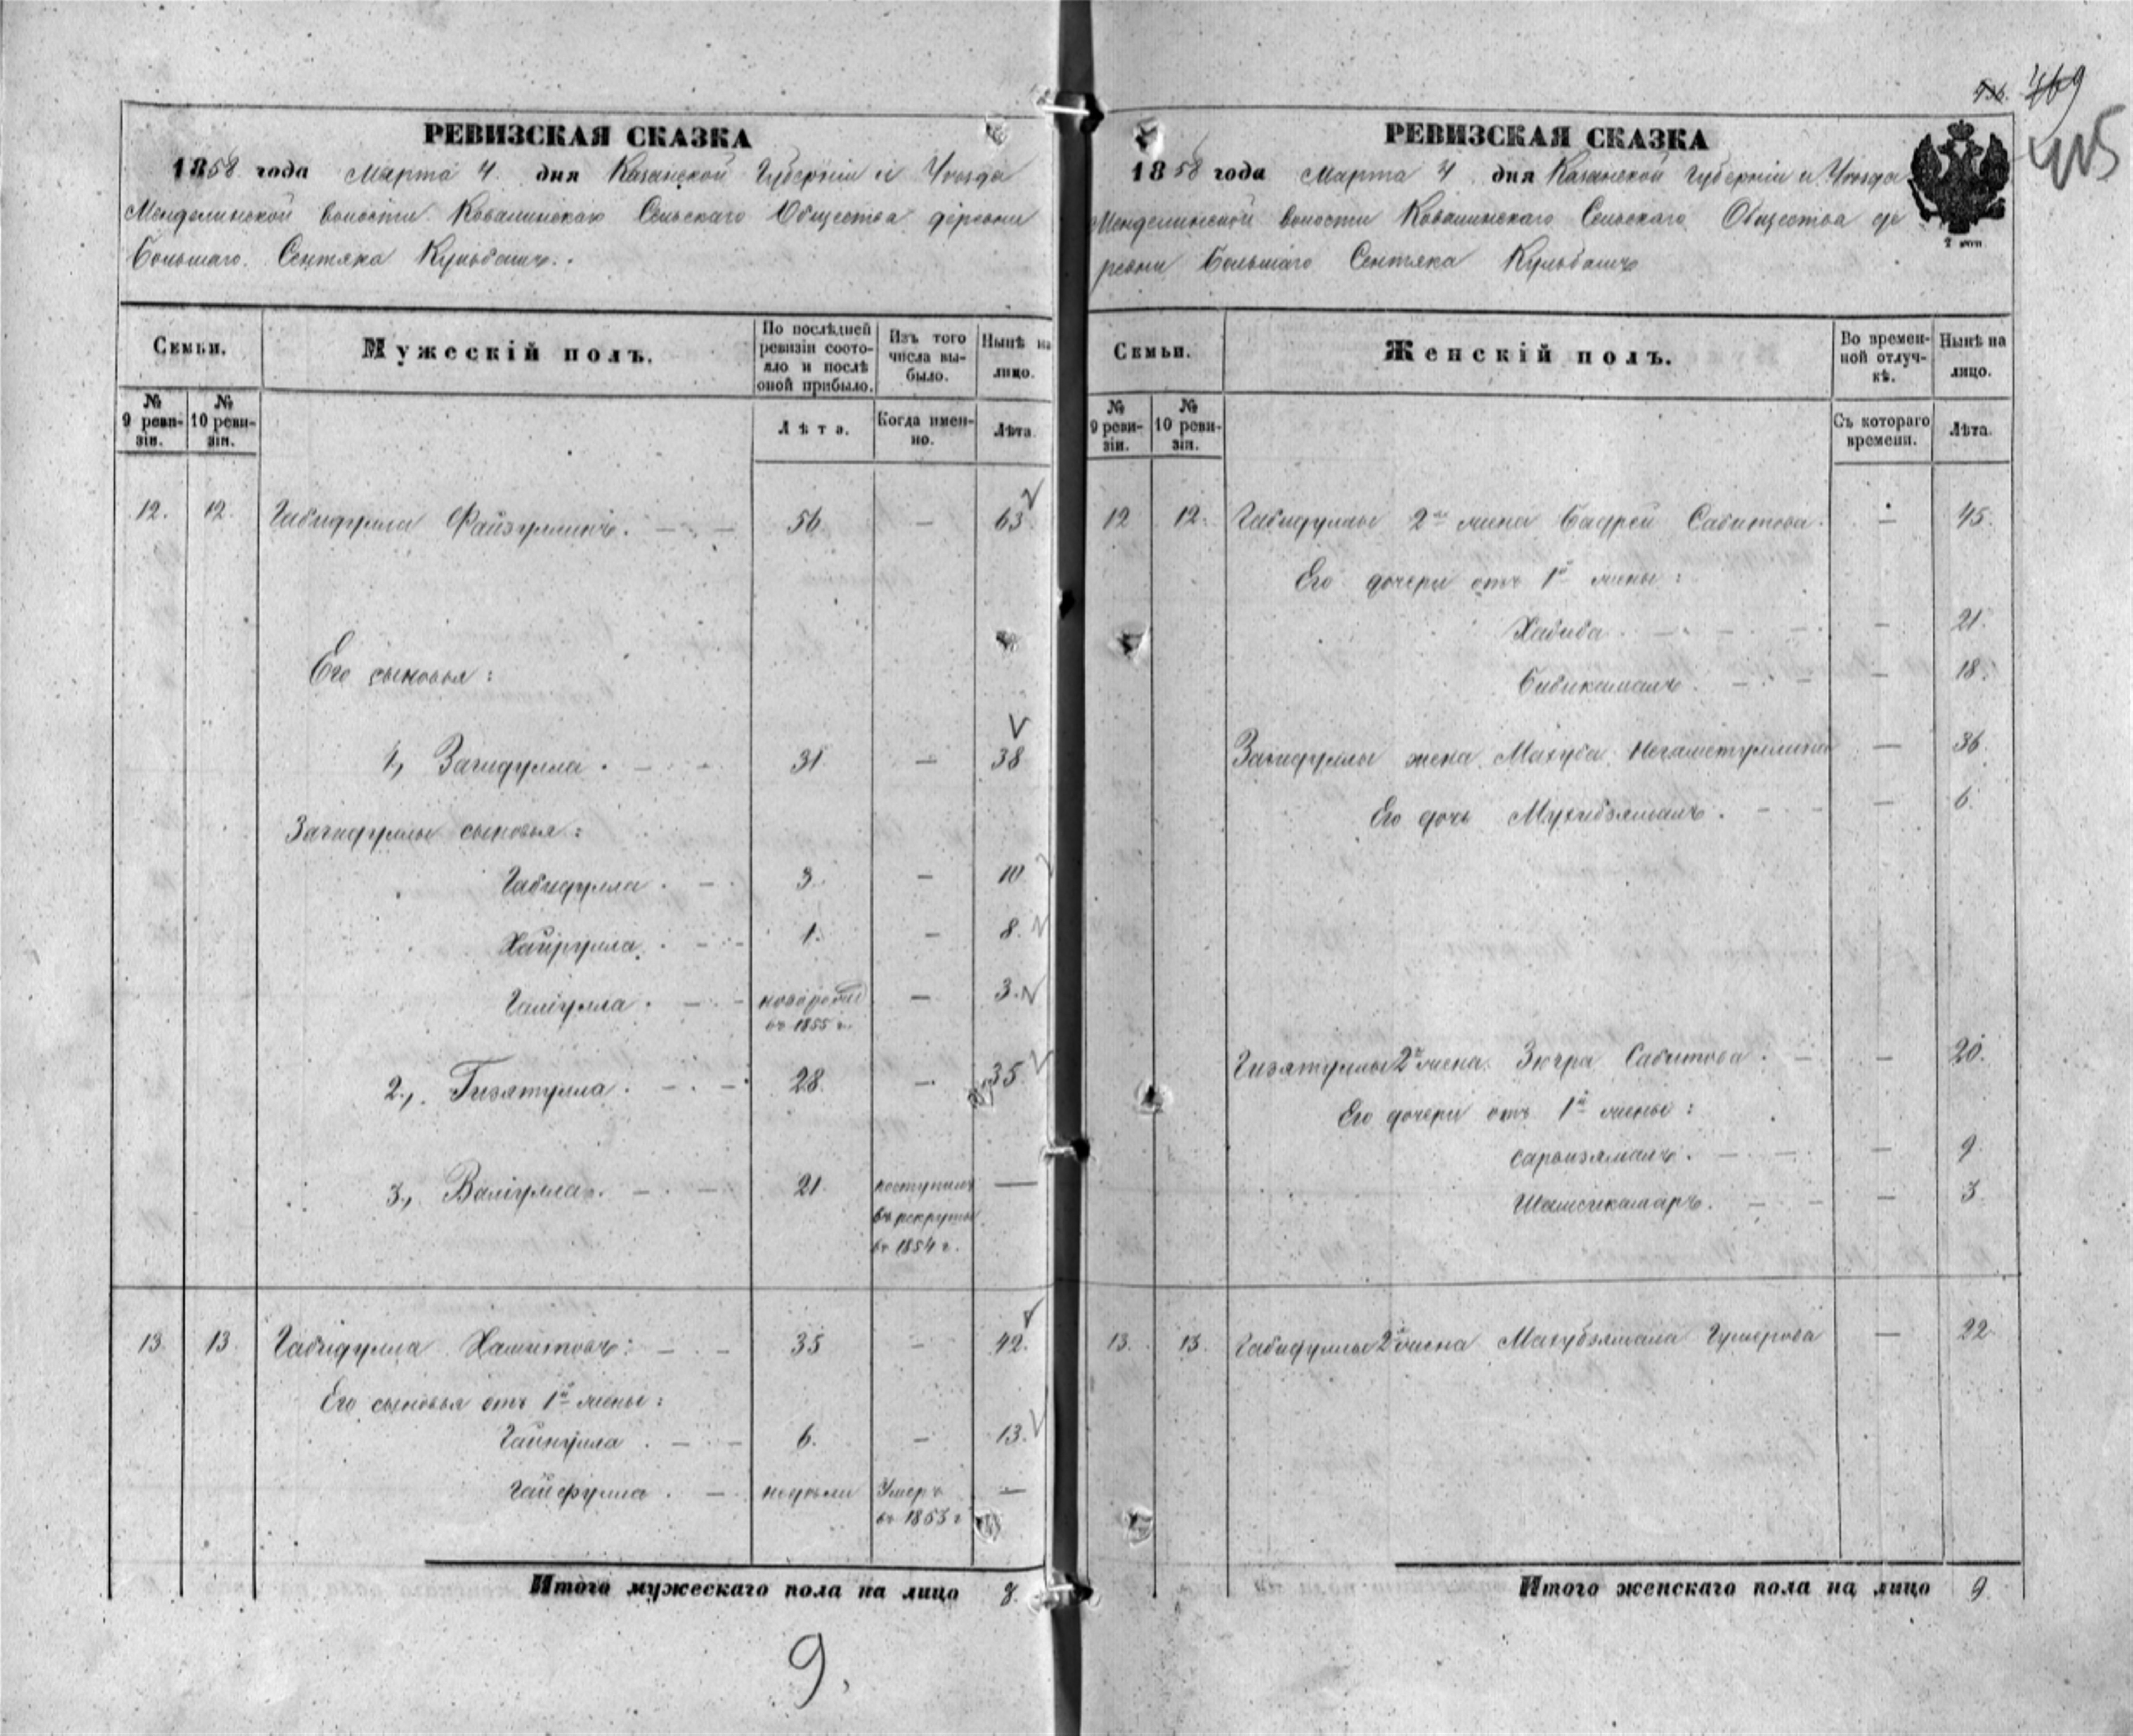 РЕВИЗСКАЯ СКАЗКА
1858 года Марта 4 дня Казанской Губерніи и Уѣзда
Менделинской волости Ковалинскаго Сельскаго Общества деревни
Большаго Сентяка Кульбашъ.
Семьи.
Мужескій полъ.
По послѣдней ревизіи состояло и послѣ оной прибыло.
Изъ того числа выбыло.
Нынѣ на лицо.
№ 9 ревизіи.
№ 10 ревизіи.
Лѣта.
Когда именно.
Лѣта.
12. 12. Габидулла Файзуллинъ. 56. — 63
Его сыновья:
1, Загидулла. 31 — 38
Загидуллы сыновья:
Габидулла. 3. — 10
Хайрулла. 1. — 8.
Галіулла. новорожд. — 3.
въ 1855 г.
2., Гизятулла. 28. — 35.
3., Валіулла. 21. поступилъ —
въ рекруты
въ 1854 г.
13. 13 Габидулла Хамитовъ: 35 — 42.
Его сыновья отъ 1й жены:
Гайнулла. 6. — 13.
Гайфулла. недѣли Умеръ —
въ 1853 г
Итого мужескаго пола на лицо 8.
9.
469
415
РЕВИЗСКАЯ СКАЗКА
1858 года Марта 4 дня Казанской Губерніи и Уѣзда
Менделинской волости Ковалинскаго Сельскаго Общества де
ревни Большаго Сентяка Кульбашъ
Семьи.
Женскій полъ.
Во временной отлучкѣ.
Нынѣ на лицо.
№ 9 ревизіи.
№ 10 ревизіи.
Съ котораго времени.
Лѣта.
12 12. Габидуллы 2я жена Бадрей Сабитова. — 45.
Его дочери отъ 1й жены:
Хабиба. — 21.
Бибикамалъ. — 18.
Загидуллы жена Махуба Негаметуллина — 36.
Его дочь Мухибзямалъ. — 6.
Гизятуллы 2я жена Зюгра Сабитова. — 20.
Его дочери отъ 1й жены:
Сарвизямалъ. — 9.
Шамсикамаръ. — 3
13. 13. Габидуллы 2я жена Махубзямала Гумерова — 22.
Итого женскаго пола на лицо 9.